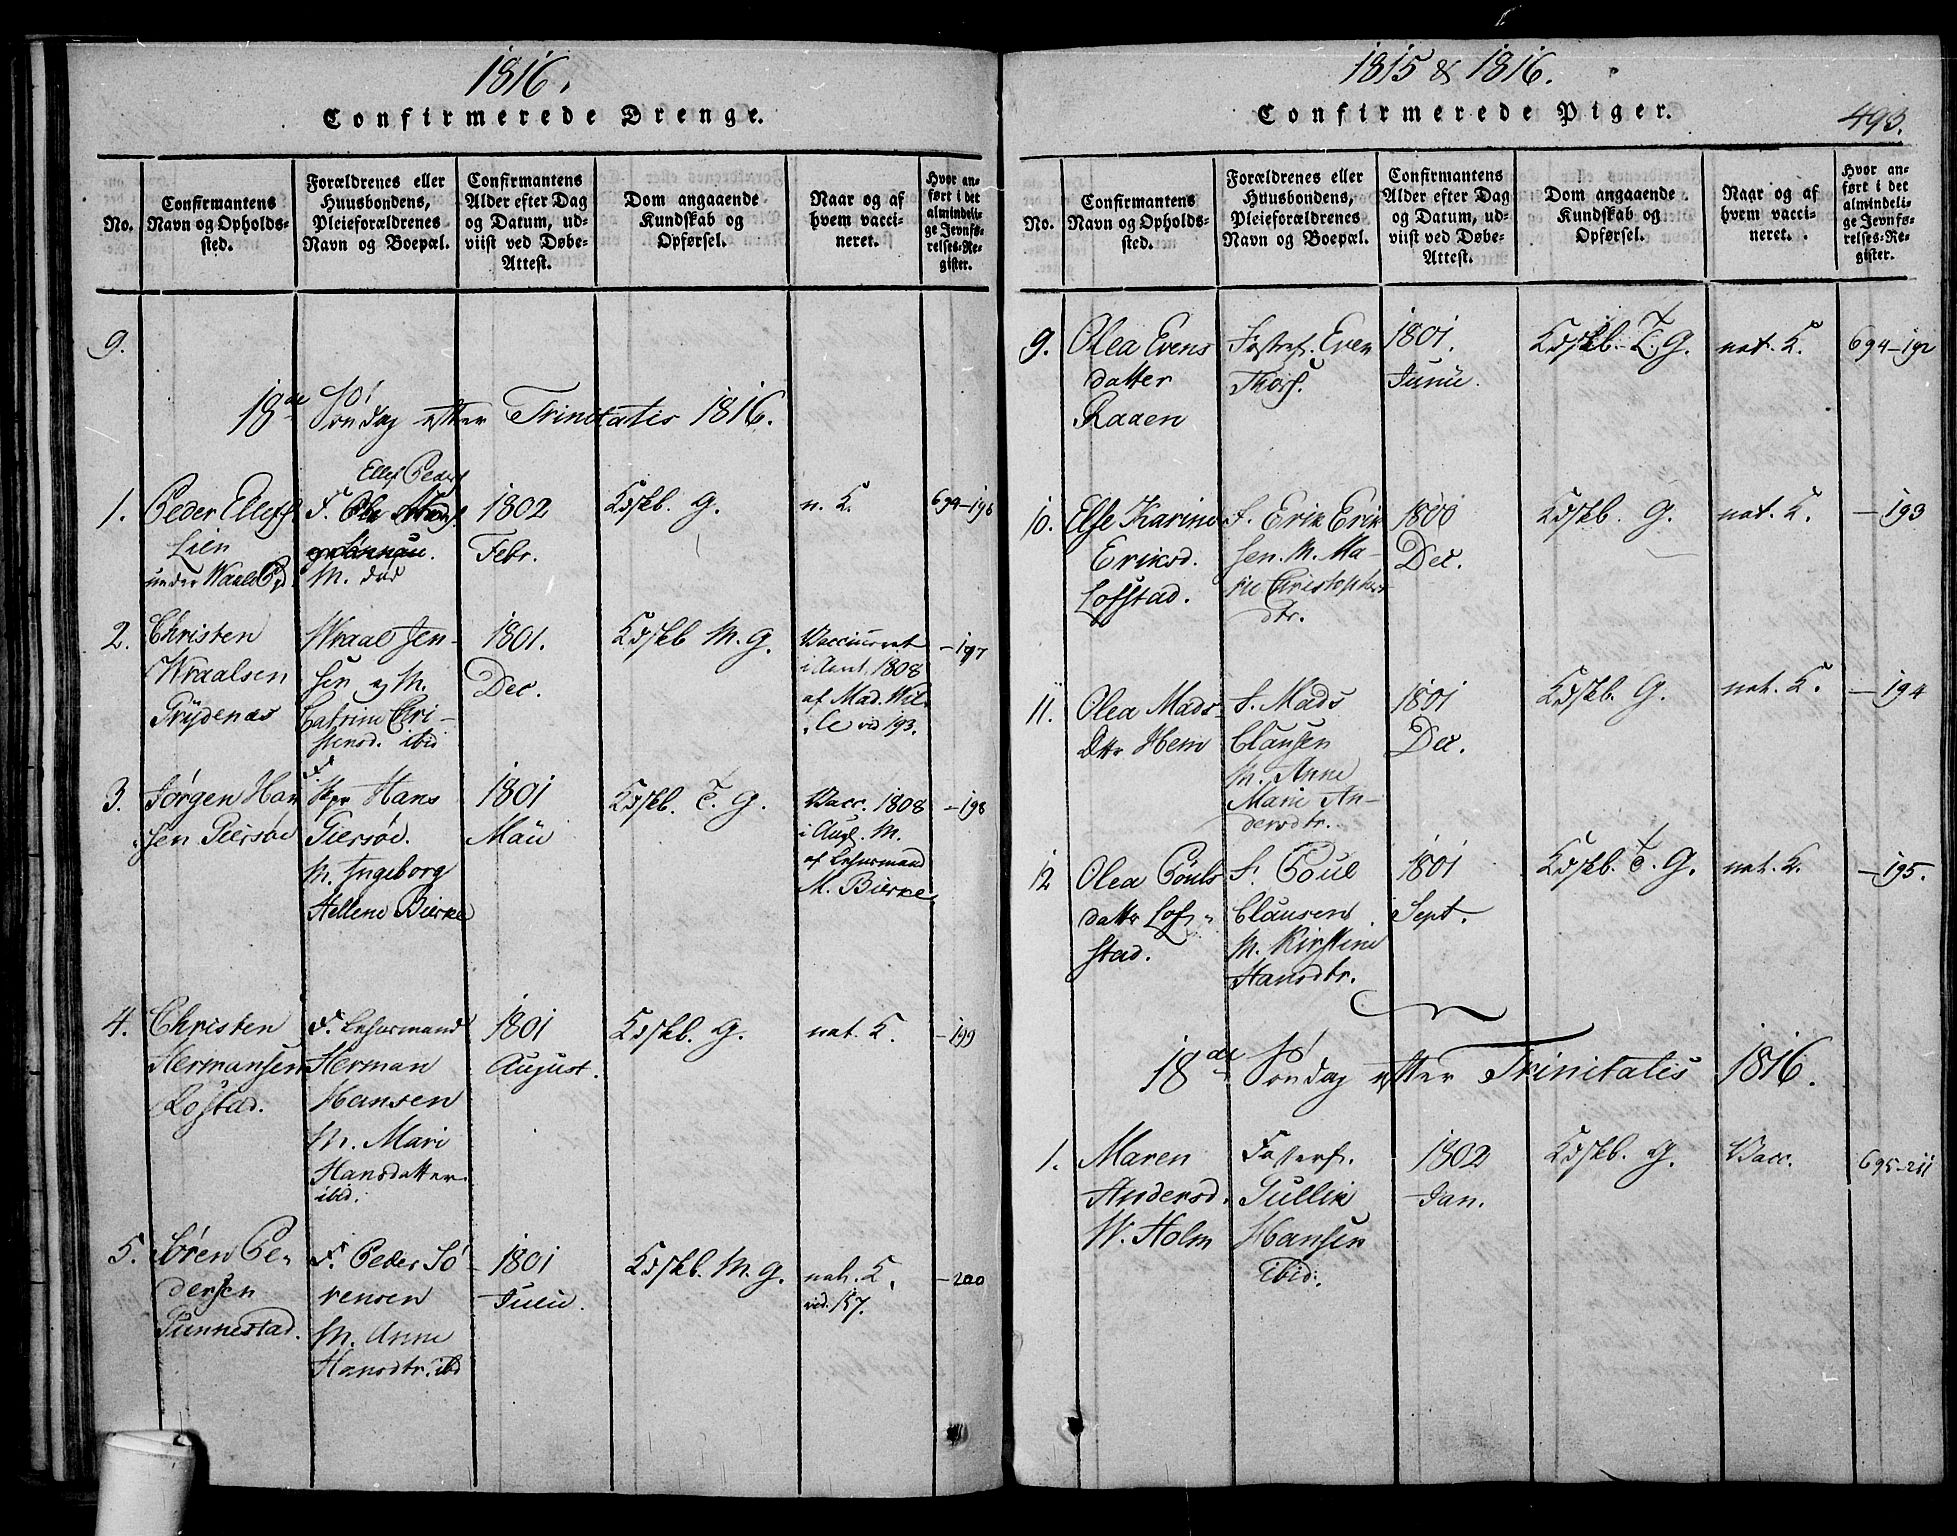 1816.
Confirmerede Drenge.
No.
Confirmantens
Navn og Opholds-
sted.
Forældrenes eller
Huusbondens,
Pleieforældrenes
Navn og Boepæl.
Confirmantens
Alder efter Dag
og Datum, ud-
viist ved Døbe-
Attest.
Dom angaaende
Kundskab og
Opførsel.
Naar og af
hvem vacci-
neret.
Hvor an-
ført i det
almindeli-
ge Jevnfø-
relses-Re-
gister.
9.
18de Søndag efter Trinitatis 1816.
1.
Peder Ellefs
Lien
under
Ellef Peders
F.
M. død
1802
Febr.
Kdskb. G.
n. K.
694-196
2.
Christen
Wraalsen
Frydenæs
Wraal Jen-
sen og M.
Catrine Chri-
stensd. ibid
1801.
Dec.
Kdskb M. G.
Vaccineret
i 1808
af Mad. Wil-
le vid 193.
-197
3.
Jørgen Han
sen Giersøe
F.
Hans
Giersøe.
M. Ingeborg
Hellene Bierke
1801
Maii
Kdskb. T. G.
Vacc. 1808
i Aug. M.
af Lehnsmand
M. Bierke
-198
4.
Christen
Hermansen
Lofstad.
F. Lehnsmand
Herman
Hansen
M. Mari
Hansdatter
ibid.
1801
August.
Kdskb. G.
nat. K.
-199
5.
Søren Pe-
dersen
Gunnestad.
F. Peder Sø-
rensen
M. Anne
Hansdtr. ibd
1801
Julii.
Kdskb. M. G.
nat. K.
vid. 157.
-200
1815 & 1816.
Confirmerede Piger.
493.
No.
Confirmantens
Navn og Opholds-
sted.
Forældrenes eller
Huusbondens,
Pleieforældrenes
Navn og Boepæl.
Confirmantens
Alder efter Dag
og Datum, ud-
viist ved Døbe-
Attest.
Dom angaaende
Kundskab og
Opførsel.
Naar og af
hvem vacci-
neret.
Hvor an-
ført i det
almindeli-
ge Jevnfø-
relses-Re-
gister.
9.
Olea Evens
datter
Raaen
Fosterf. Even
Thors.
1801.
Junii.
Kdskb. T. G.
nat. K.
694-192
10.
Else Karine
Eriksd.
Lofstad.
F. Erik Erik
sen. M. Ma-
rie Christophers
dtr.
1800
Dec.
Kdskb. G.
nat. K.
-193
11.
Olea Mads-
dttr Hem
F. Mads
Clausen
M. Anne
Marie An-
dersdtr.
1801
Dec.
Kdskb. G.
nat. K.
-194
12
Olea Pouls
datter Lof-
stad.
F. Poul
Clausen
M. Kirstine
Hansdtr.
1801
Sept.
Kdskb. T. G.
nat. K.
-195.
18de Søndag efter Trinitatis 1816.
1.
Maren
Andersd.
W. Holm
Fosterf.
Gullik
Hansen
ibid.
1802
Jan.
Kdskb. G.
Vacc.
695-211